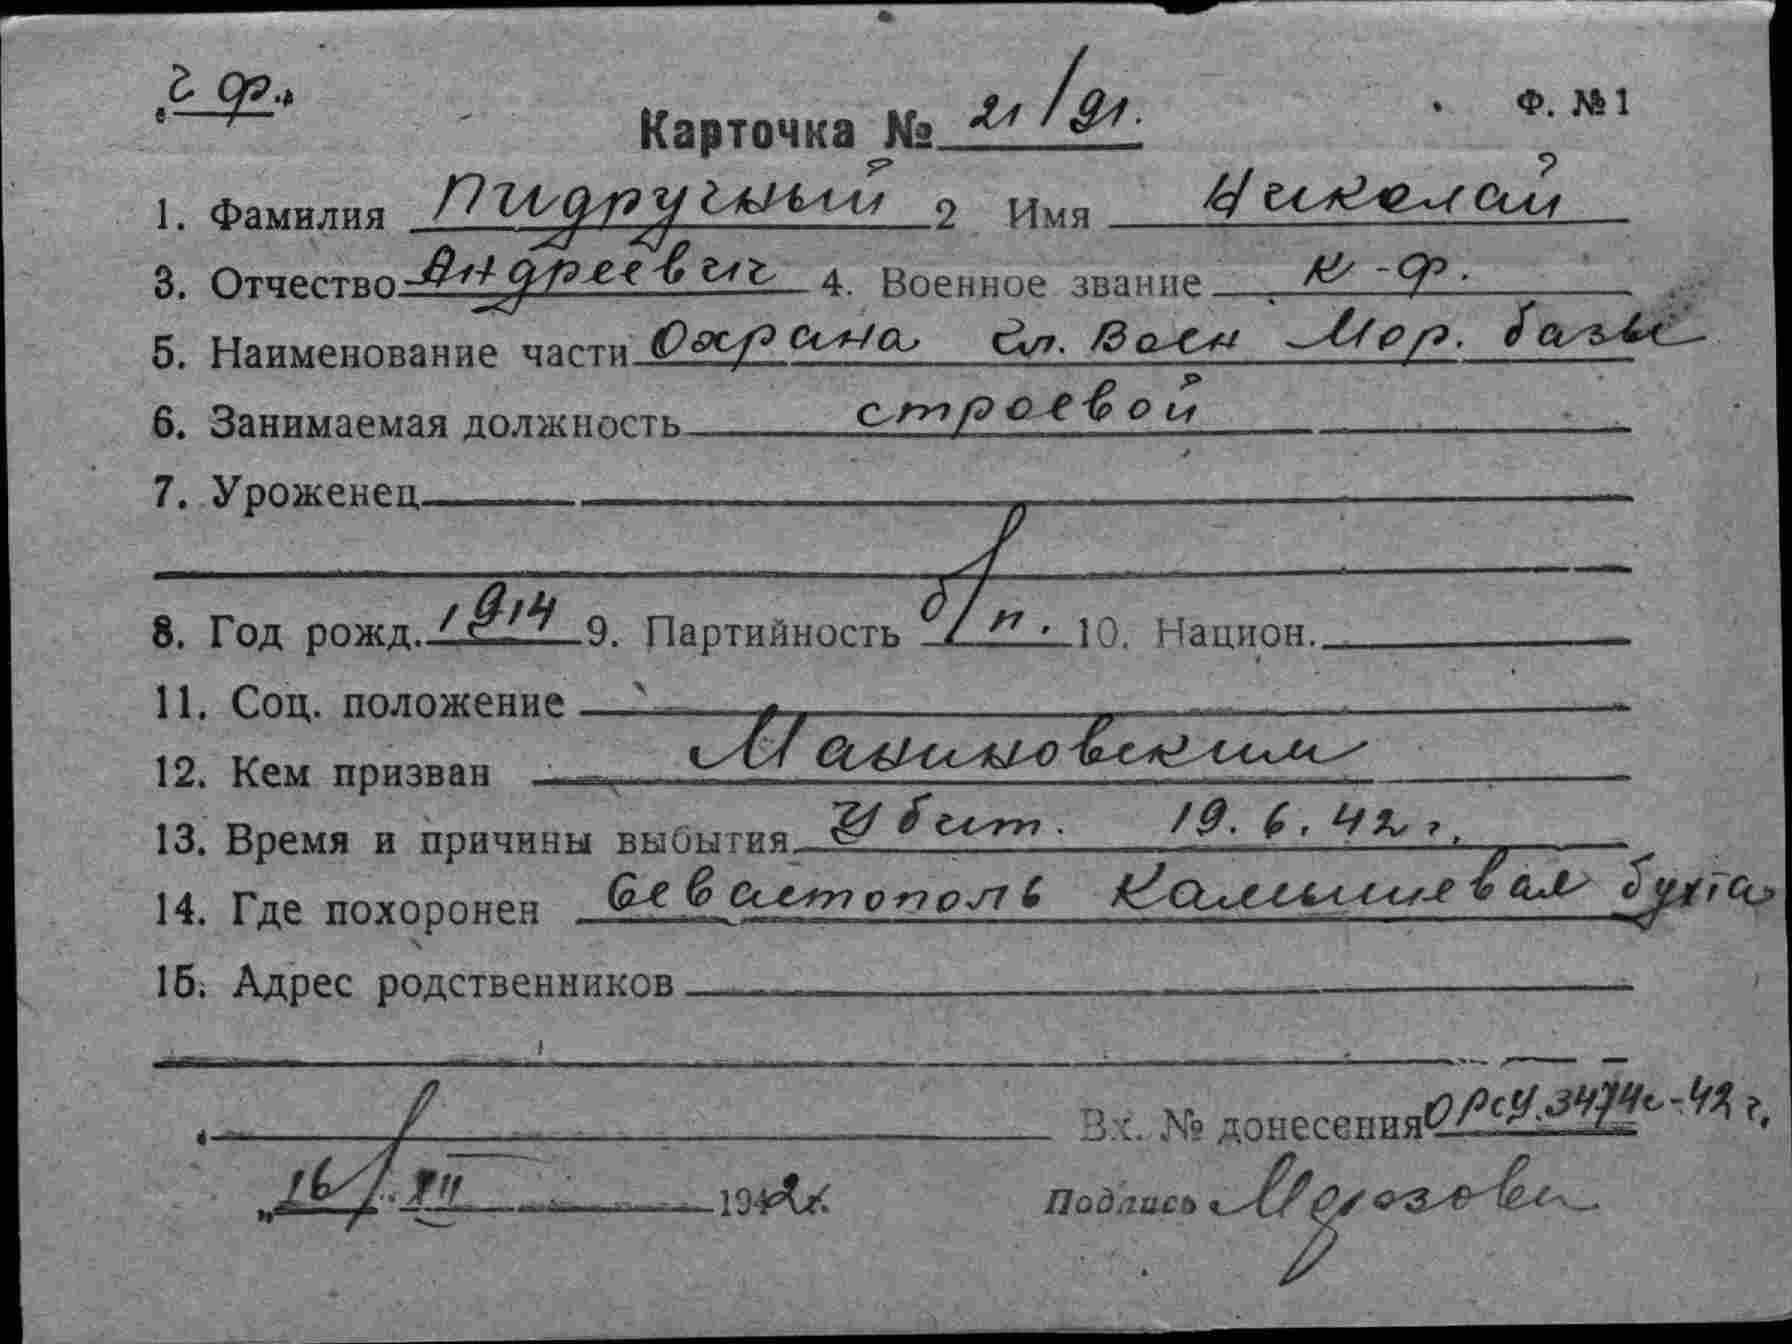 „Ч Ф."
Ф. №1
Карточка № 21/91.
1. Фамилия Пидручный 2 Имя Николай
3. Отчество Андреевич 4. Военное звание к-ф.
5. Наименование части Охрана Гл. Воен Мор. базы
6. Занимаемая должность строевой
7. Уроженец
8. Год рожд. 1914 9. Партийность б/п. 10. Национ.
11. Соц. положение
12. Кем призван Маниновским
13. Время и причины выбытия Убит. 19.6.42 г.
14. Где похоронен Севастополь Камышевая бухта
15. Адрес родственников
Вх. № донесения ОРСУ 3474с-42 г.
„16/. XII 1942г.
Подпись Морозова